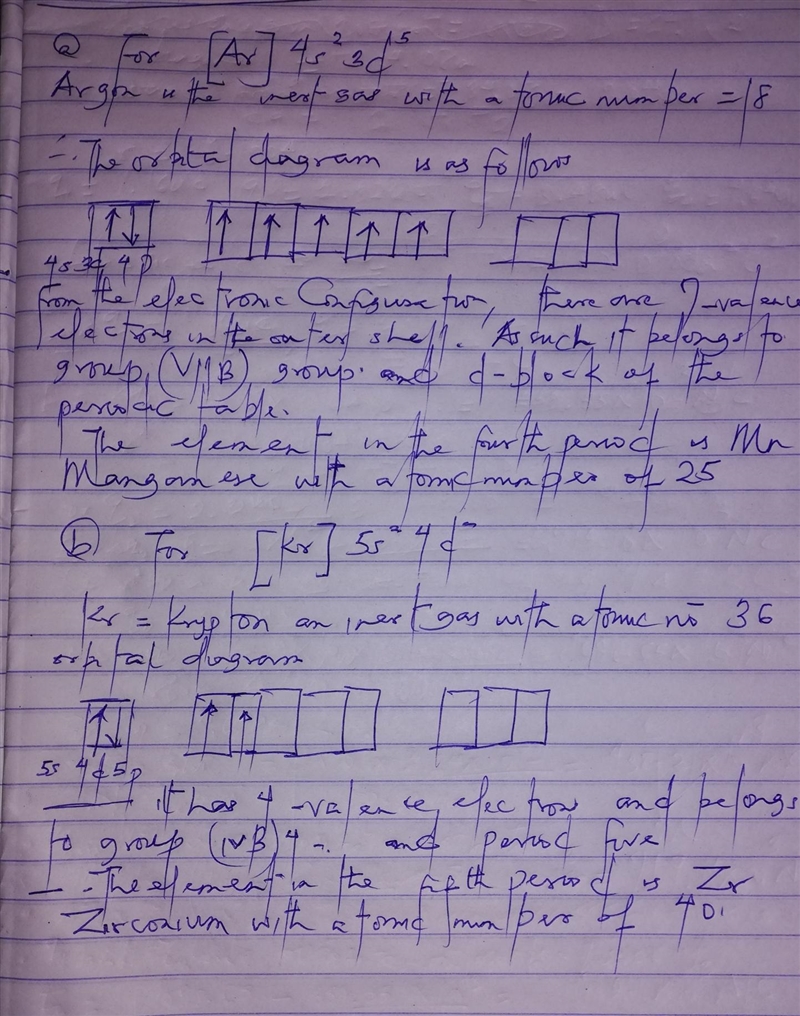 (a) For [Ar] 4s² 3d⁵
Argon is the inert gas with atomic number = 18
∴ The orbital diagram is as follows
↑↓ ↑ ↑ ↑ ↑ ↑
4s 3d 4p
from the electronic Configuration, there are 7-valence
electrons in the outer shell. As such it belongs to
group (VIIB) group and d-block of the
periodic table.
The element in the fourth period is Mn
Manganese with atomic number of 25
(b) For [Kr] 5s² 4d²
Kr = Krypton an inert gas with atomic no 36
orbital diagram
↑↓ ↑ ↑
5s 4d 5p
it has 4-valence electrons and belongs
to group (IVB) 4 and period five
∴ The element in the fifth period is Zr
Zirconium with atomic number of 40.